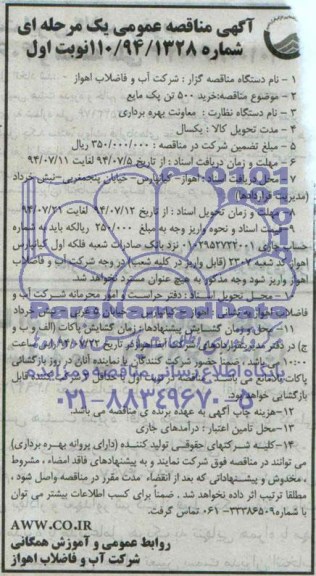 آگهی مناقصه عمومی یک مرحله ای
شماره ۱۱۰/۹۴/۱۳۲۸نوبت اول
۱ - نام دستگاه مناقصه گزار : شرکت آب و فاضلاب اهواز
۲ - موضوع مناقصه:خرید ۵۰۰ تن پک مایع
۳ - نام دستگاه نظارت : معاونت بهره برداری
۴ - مدت تحویل کالا : یکسال
۵ - مبلغ تضمین شرکت در مناقصه : ۳۵۰/۰۰۰/۰۰۰ ریال
۶ - مهلت و زمان دریافت اسناد : از تاریخ ۹۴/۰۷/۵ لغایت ۹۴/۰۷/۱۱
۷ - محل دریافت اسناد: اهواز- کیانپارس- خیابان پنجم‌غربی-نبش خرداد
(مدیریت قراردادها)
۸- مهلت و زمان تحویل اسناد : از تاریخ ۹۴/۰۷/۱۲ لغایت ۹۴/۰۷/۲۱
۹- قیمت اسناد و نحوه واریز وجه به مبلغ ۲۵۰/۰۰۰ ریالکه باید به شماره
حساب جاری نزد بانک صادرات شعبه فلکه اول کیانپارس
اهواز کد شعبه ۲۳۰۷ (قابل واریز در کلیه شعب) در وجه شرکت آب و فاضلاب
اهواز واریز شود وجه مذکور به هیچ عنوان مسترد نخواهد شد.
محل تحویل اسناد : دفتر حراست و امور محرمانه شرکت آب و
فاضلاب اهواز
۱۱- محل و زمان گشایش پیشنهادها: زمان گشایش پاکات (الف و ب و
ج) در دفتر ساعت
۱۰:۰۰ می باشد، ضمناً حضور شرکت کنندگان یا نماینده آنان در روز بازگشائی
پاکات بلامانع می باشد. قابل
بازگشایی خواهد بود.
۱۲-هزینه چاپ آگهی به عهده برنده ی مناقصه می باشد.
۱۳-محل تامین اعتبار : درآمدهای جاری
۱۴-کلیه شرکتهای حقوقی تولید کننده (دارای پروانه بهره برداری)
می توانند در مناقصه فوق شرکت نمایند و به پیشنهادهای فاقد امضاء ، مشروط
، مخدوش و پیشنهاداتی که بعد از انقضاء مدت مقرر در مناقصه واصل شود ،
مطلقا ترتیب اثر داده نخواهد شد . ضمناً برای کسب اطلاعات بیشتر می توان
با شماره ۳۳۳۸۶۵۰۹-۰۶۱ تماس گرفت.
AWW.CO.IR
روابط عمومی و آموزش همگانی
شرکت آب و فاضلاب اهواز
پایگاه اطلاع رسانی مناقصه و مزایده
۰۲۱-۸۸۳۴۹۶۷۰-۵